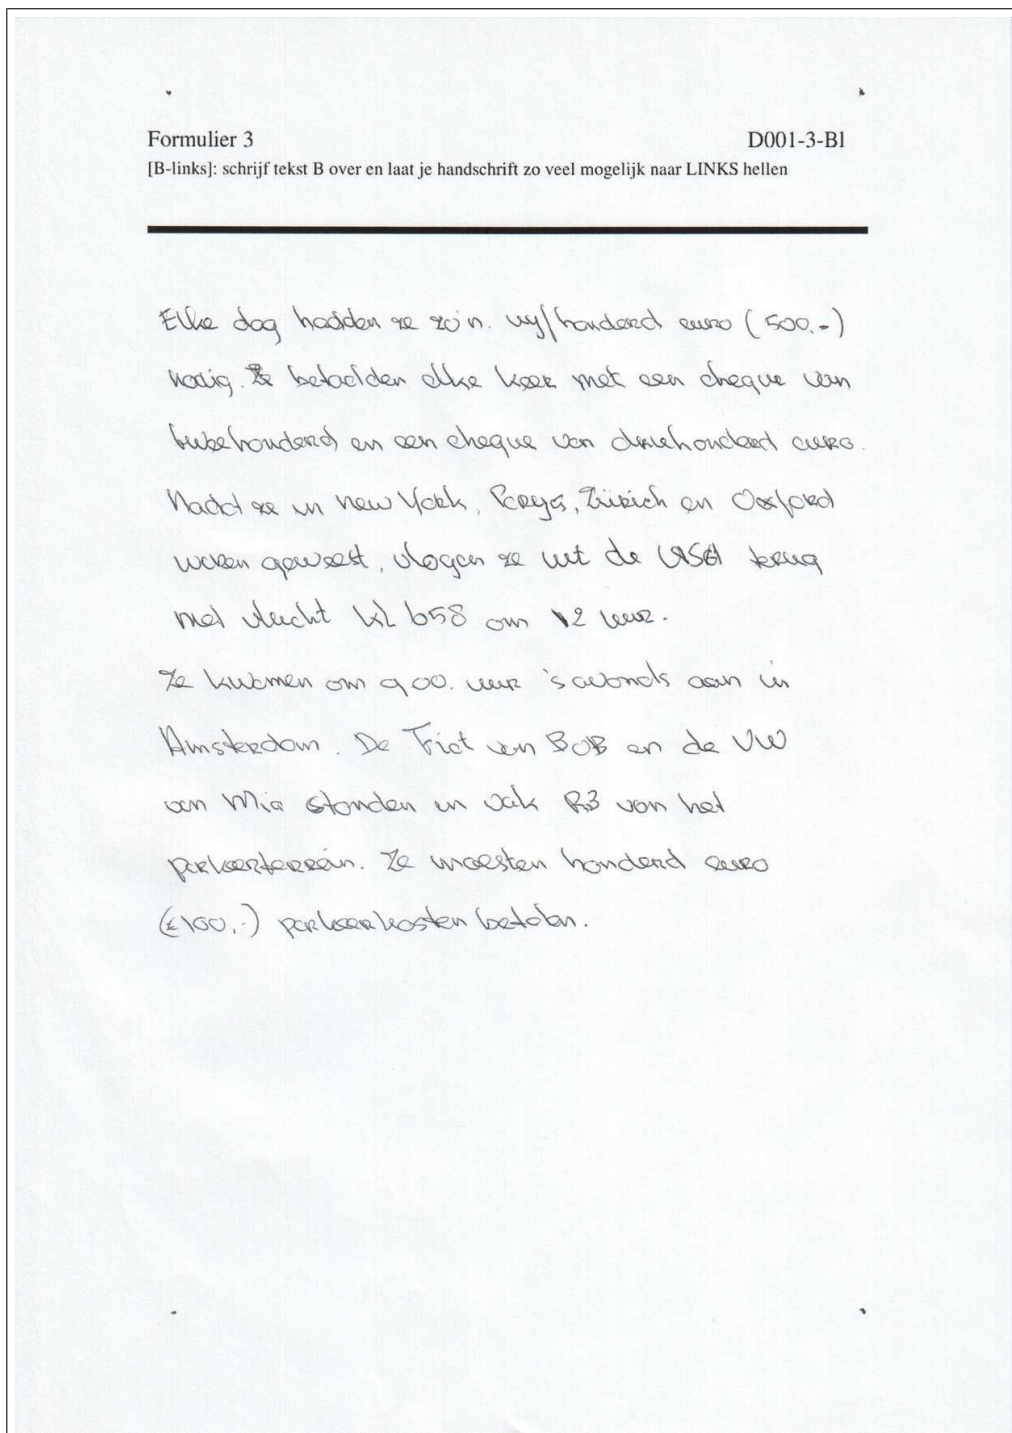 Formulier 3 D001-3-Bl
[B-links]: schrijf tekst B over en laat je handschrift zo veel mogelijk naar LINKS hellen
Elke dag hadden ze zo'n. vijfhonderd euro (500,-)
nodig. Ze betaalden elke keer met een cheque van
tweehonderd en een cheque van driehonderd euro.
Nadat ze in New York, Parijs, Zürich en Oxford
waren geweest, vlogen ze uit de USA terug
met vlucht KL 658 om 12 uur.
Ze kwamen om 9.00. uur 's avonds aan in
Amsterdam. De Fiat van BOB en de VW
van Mia stonden in vak R3 van het
parkeerterrein. Ze moesten honderd euro
(€100,-) parkeerkosten betalen.